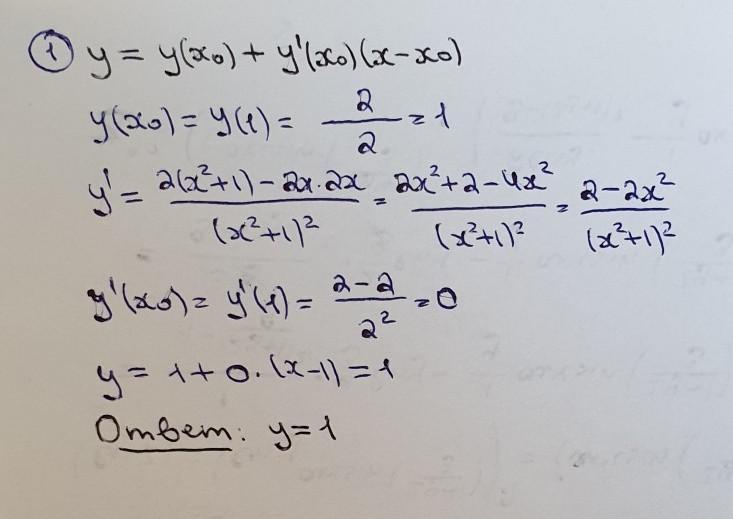 ① y = y(x₀) + y'(x₀)(x-x₀)
y(x₀) = y(1) = 2/2 = 1
y' = (2(x²+1) - 2x·2x)/(x²+1)² = (2x²+2-4x²)/(x²+1)² = (2-2x²)/(x²+1)²
y'(x₀) = y'(1) = (2-2)/2² = 0
y = 1 + 0·(x-1) = 1
Ответ: y=1